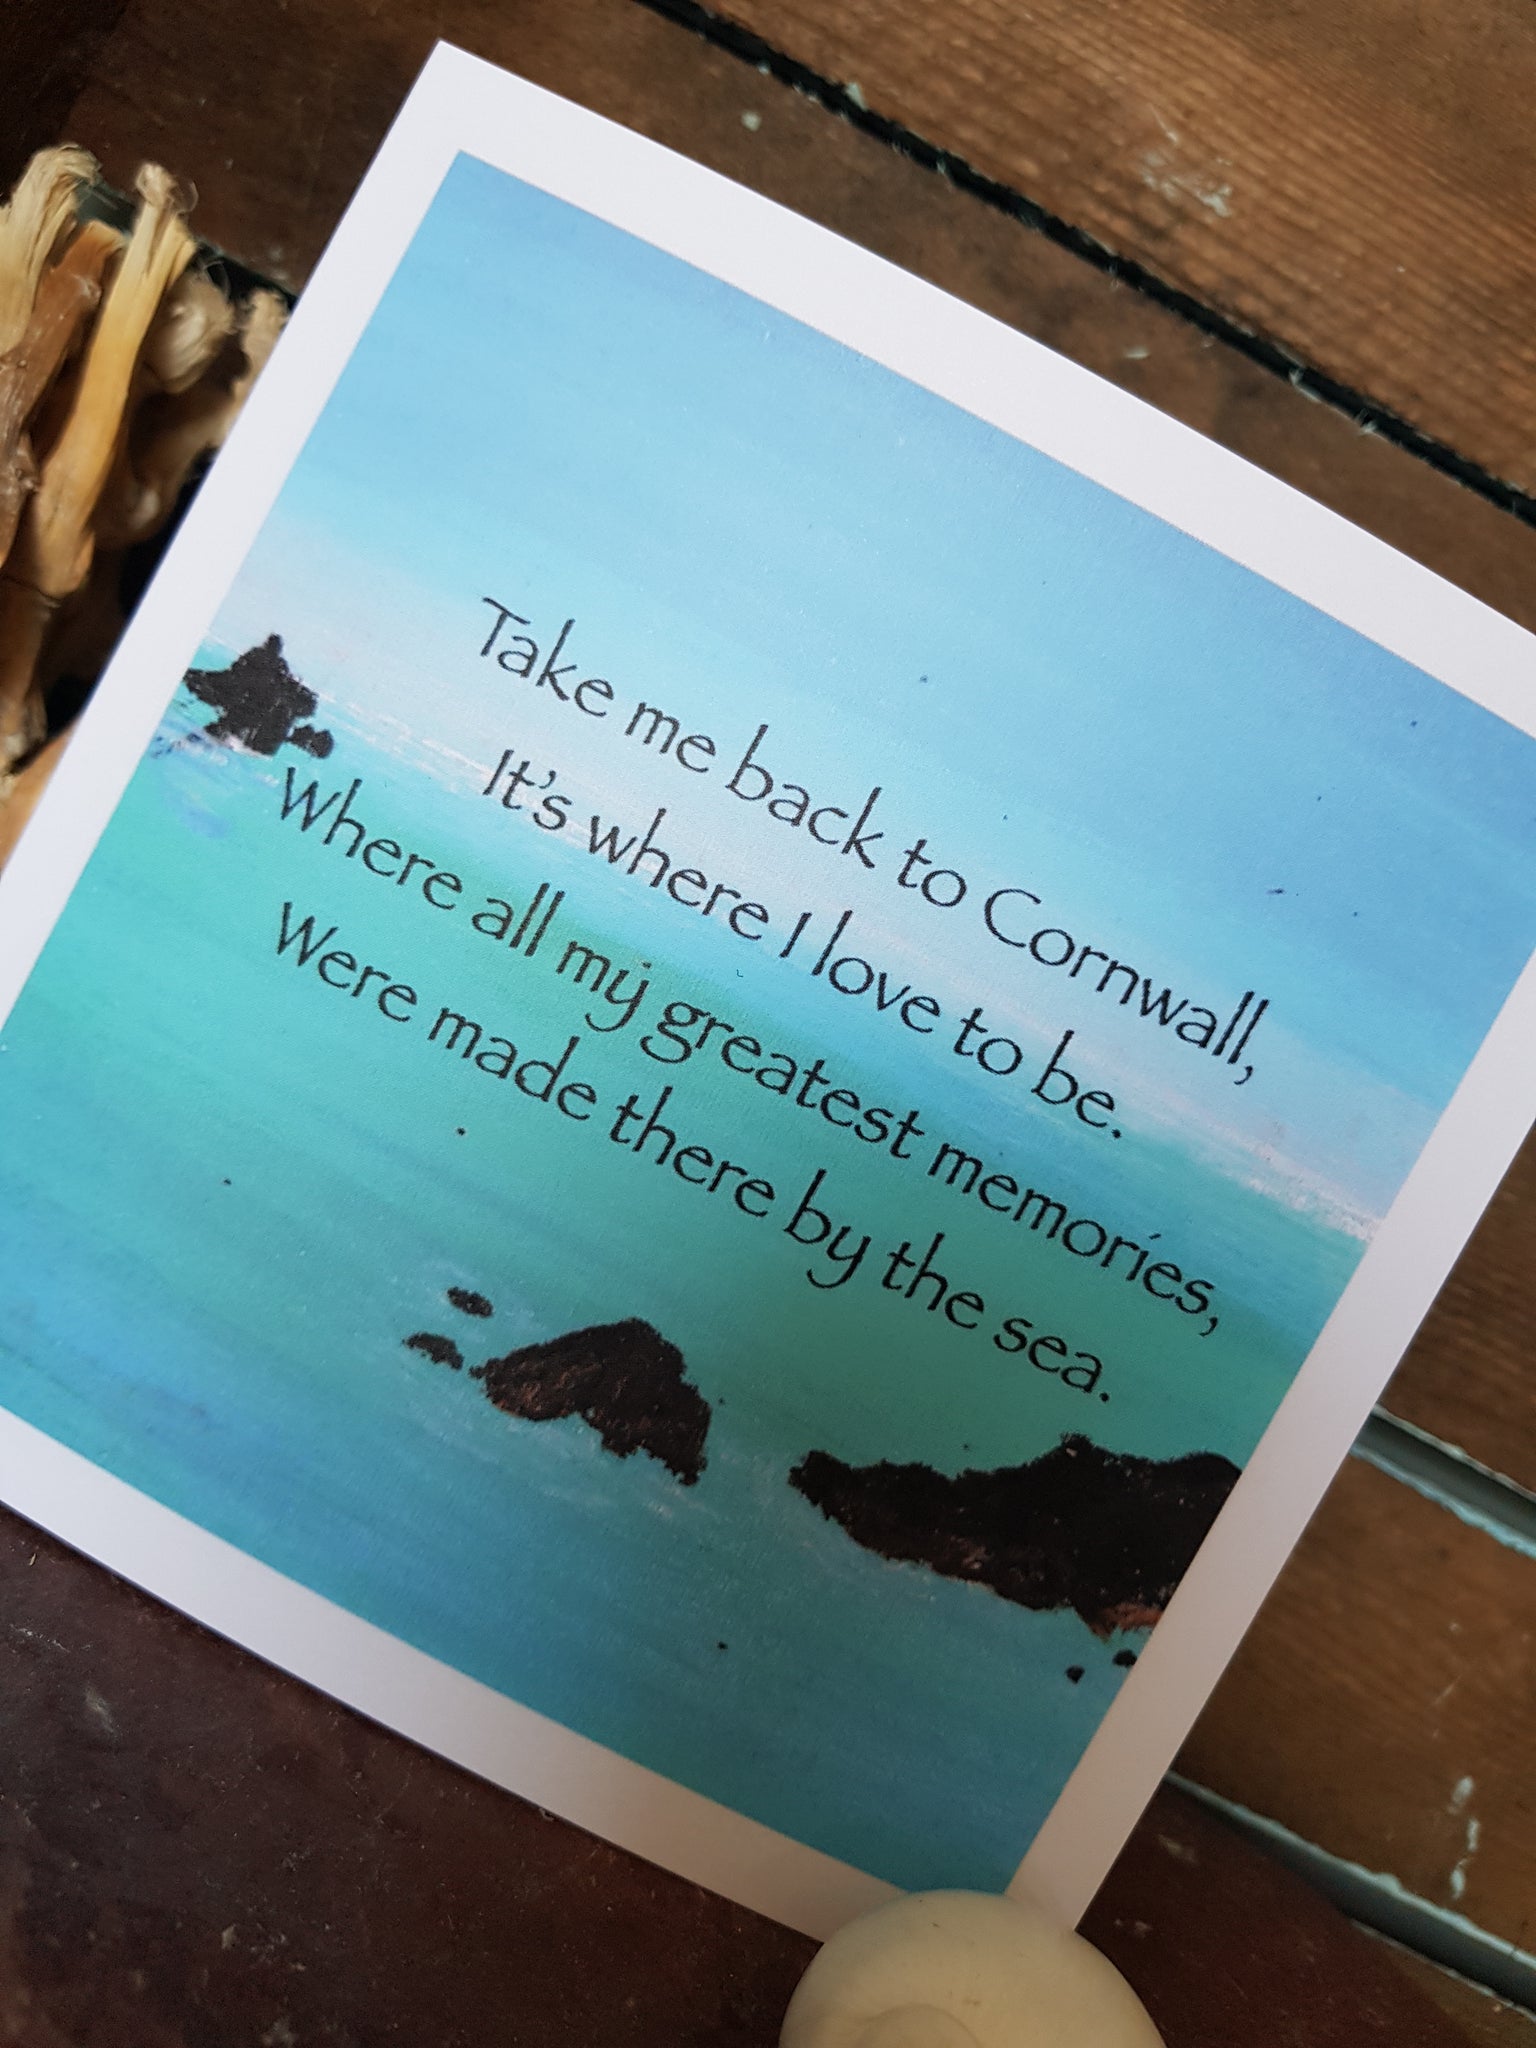 Take me back to Cornwall,
It's where I love to be.
Where all my greatest memories,
Were made there by the sea.